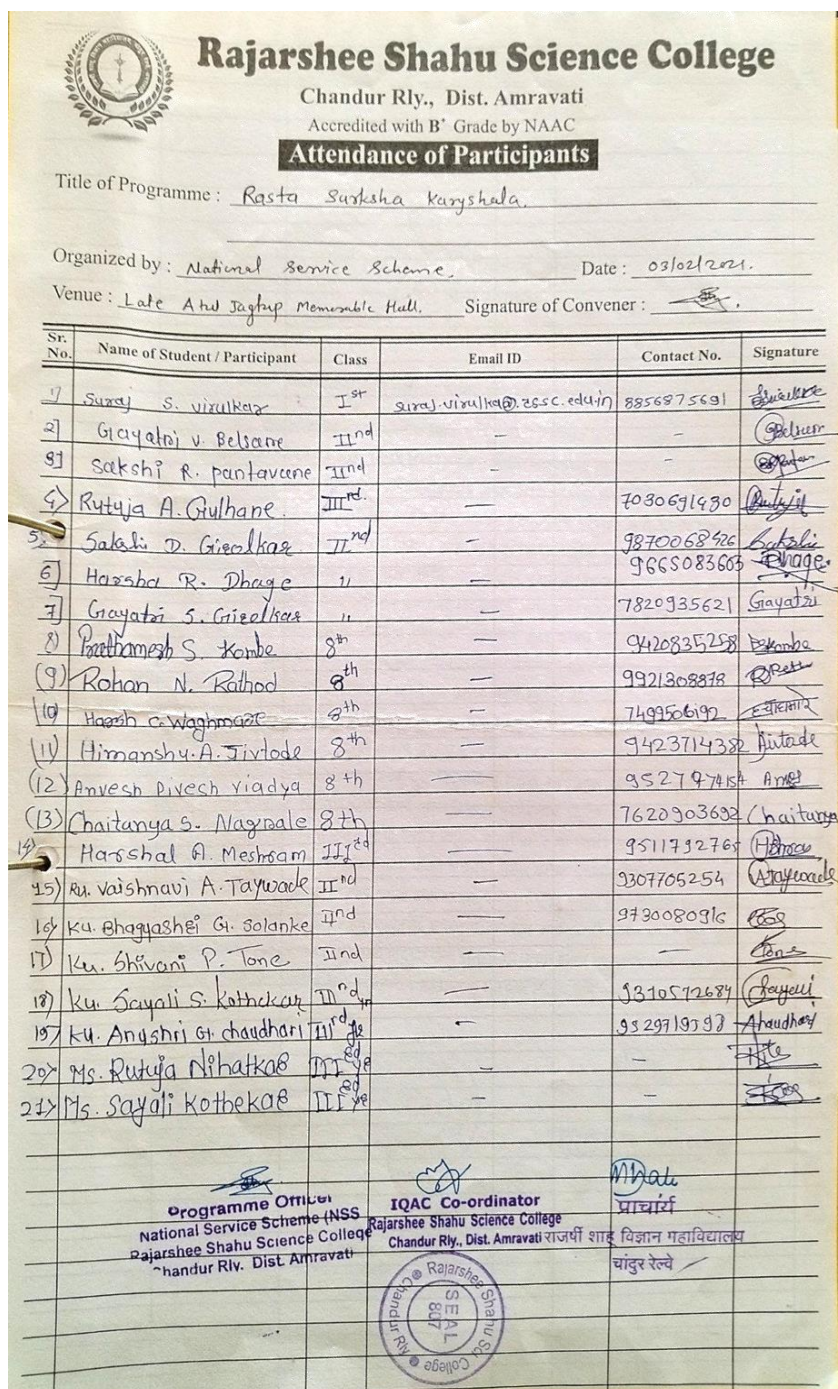 Rajarshee Shahu Science College
Chandur Rly., Dist. Amravati
Accredited with B+ Grade by NAAC
Attendance of Participants
Title of Programme : Rasta Surksha Karyshala.
Organized by : National Service Scheme. Date : 03/02/2021.
Venue : Late Atul Jagtap Memorable Hall. Signature of Convener :
Sr. No. Name of Student / Participant Class Email ID Contact No. Signature
1) Suraj S. Virulkar Ist suraj.virulka@.rssc.edu.in 8856875691
2] Gayatri V. Belsare IInd - - Belsare
3] Sakshi R. pantavene IInd - -
4) Rutuja A. Gulhane. IIIrd. - 7030691430
5) Sakshi D. Girolkar IInd - 9870068426 Sakshi
6] Harsha R. Dhage " - 9665083603 Dhage.
7] Gayatri S. Girolkar " - 7820935621 Gayatri
8) Prathamesh S. Kombe 8th - 9420835258 PSKombe
(9) Rohan N. Rathod 8th - 9921308878
(10 Harsh C. Waghmare 8th - 7499506192 ह वाघमारे
(11) Himanshu.A.Jivtode 8th - 9423714382 Jivtode
(12) Anvesh Divesh viadya 8th -
(13) Chaitanya S. Nagmale 8th - 7620903692 Chaitanya
14) Harshal A. Meshram IIIrd - 9511792765
15) Ku. Vaishnavi A. Taywade IInd - 9307705254 ATaywade
16) Ku. Bhagyashri G. Solanke IInd - 9730080916
17) Ku. Shivani P. Tone IInd - - Tone
18) Ku. Sayali S. Kothekar IIIrd yr - 9310572684 Sayali
19) Ku. Anushri G. chaudhari IIIrd yr - Chaudhari
20) Ms. Rutuja Nihatkar IIIrd yr - -
21) Ms. Sayali Kothekar IIIrd yr - -
Programme Officer
National Service Scheme (NSS
Rajarshee Shahu Science College
Chandur Rly. Dist. Amravati
IQAC Co-ordinator
Rajarshee Shahu Science College
Chandur Rly., Dist. Amravati
प्राचार्य
राजर्षी शाहू विज्ञान महाविद्यालय
चांदुर रेल्वे
Rajarshee Shahu Sci. College Chandur Rly
SEAL
807